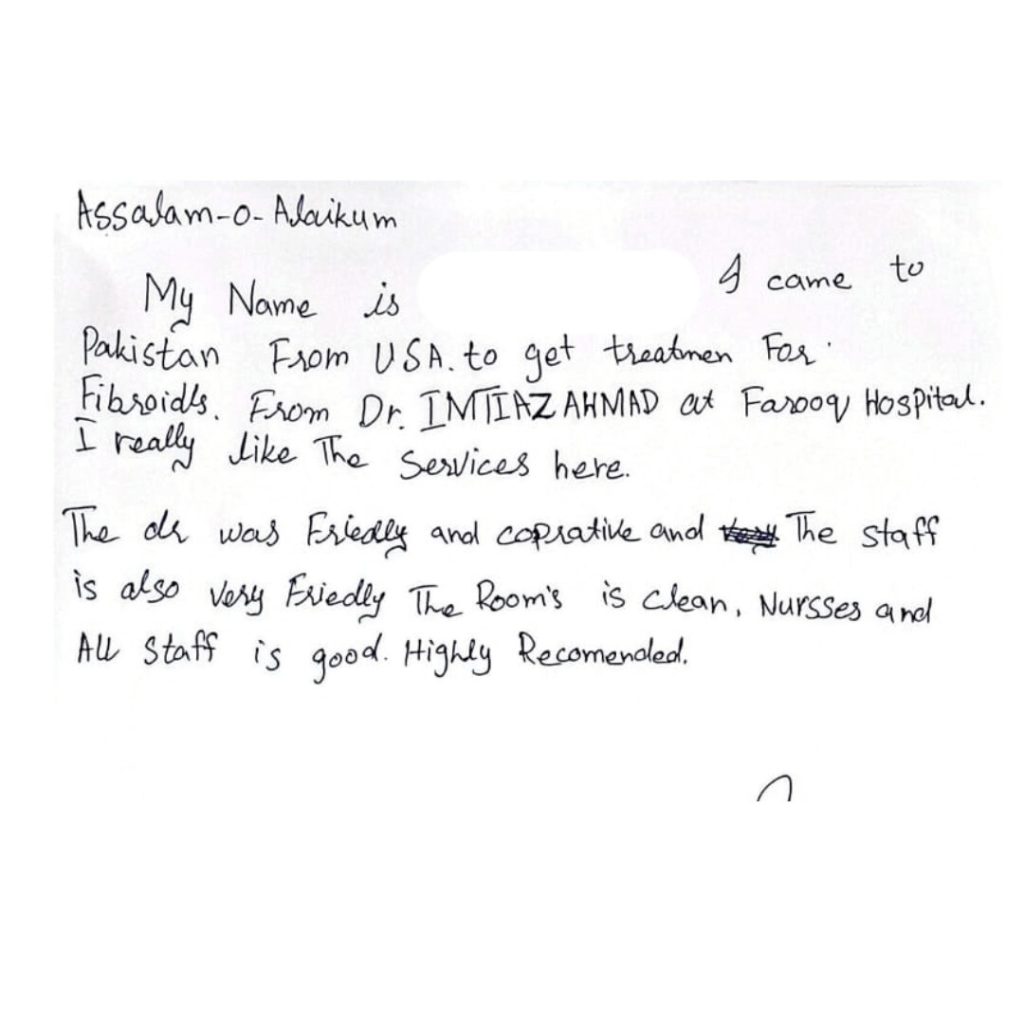 Assalam-o-Alaikum
My Name is I came to
Pakistan From USA. to get treatmen For
Fibroidls. From Dr. IMTIAZ AHMAD at Farooq Hospital.
I really like The Services here.
The dr was Friedly and coprative and The staff
is also very Friedly The Room's is clean, Nursses and
All Staff is good. Highly Recomended.